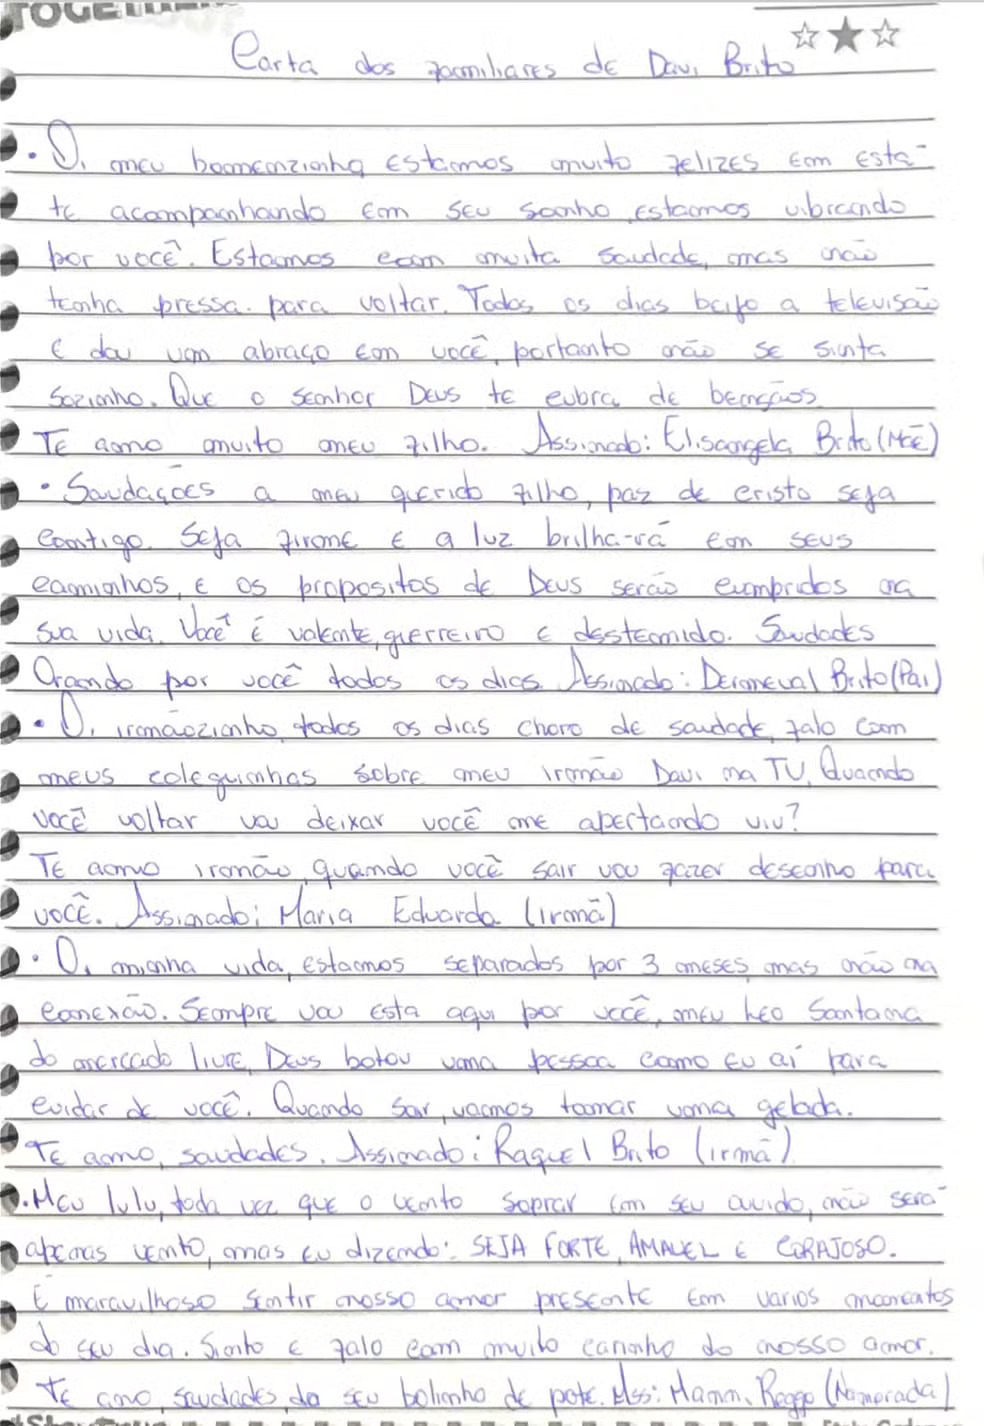 TOGETHER
Carta dos familiares de Davi Brito
• Oi meu homenzinho estamos muito felizes em está-
te acompanhando em seu sonho, estamos vibrando
por você. Estamos com muita saudade, mas não
tenha pressa para voltar. Todos os dias beijo a televisão
e dou um abraço em você, portanto não se sinta
sozinho. Que o senhor Deus te cubra de bençãos.
Te amo muito meu filho. Assinado: Elisangela Brito (Mãe)
• Saudações a meu querido filho, paz de cristo seja
contigo. Seja firme e a luz brilha-rá em seus
caminhos, e os propositos de Deus serão cumpridos na
sua vida. Você é valente, guerreiro e desstemido. Saudades
Orando por você todos os dias. Assinado: Demeval Brito (Pai)
• Oi irmãozinho, todos os dias choro de saudade, falo com
meus coleguinhas sobre meu irmão Davi na TV. Quando
você voltar vou deixar você me apertando viu?
Te amo irmão, quando você sair vou fazer desenho para
você. Assinado: Maria Eduarda (irmã)
• Oi minha vida, estamos separados por 3 meses, mas não na
conexão. Sempre vou esta aqui por você, meu Leo Santana
do mercado livre, Deus botou uma pessoa como eu aí para
cuidar de você. Quando sair, vamos tomar uma gelada.
Te amo, saudades. Assinado: Raquel Brito (irmã)
• Meu lulu, toda vez que o vento soprar em seu ouvido, não será
apenas vento, mas eu dizendo: SEJA FORTE, AMAVEL E CORAJOSO.
É maravilhoso sentir nosso amor presente em varios momentos
do seu dia. Sinto e falo com muito carinho do nosso amor.
Te amo, saudades do seu bolinho de pote. Ass: Mann. Reggo (Namorada)